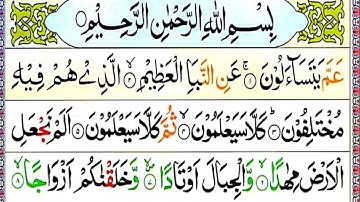 بِسْمِ اللّٰهِ الرَّحْمٰنِ الرَّحِيْمِ
عَمَّ يَتَسَآءَلُوْنَ ۚ‏﴿۱﴾ عَنِ النَّبَاِ الْعَظِيْمِ ۙ‏﴿۲﴾ الَّذِىْ هُمْ فِيْهِ
مُخْتَلِفُوْنَ ؕ‏﴿۳﴾ كَلَّا سَيَعْلَمُوْنَ ۙ‏﴿۴﴾ ثُمَّ كَلَّا سَيَعْلَمُوْنَ‏﴿۵﴾ اَلَمْ نَجْعَلِ
الْاَرْضَ مِهٰدًا ۙ‏﴿۶﴾ وَّالْجِبَالَ اَوْتَادًا ۙ‏﴿۷﴾ وَّخَلَقْنٰكُمْ اَزْوَاجًا ۙ‏﴿۸﴾